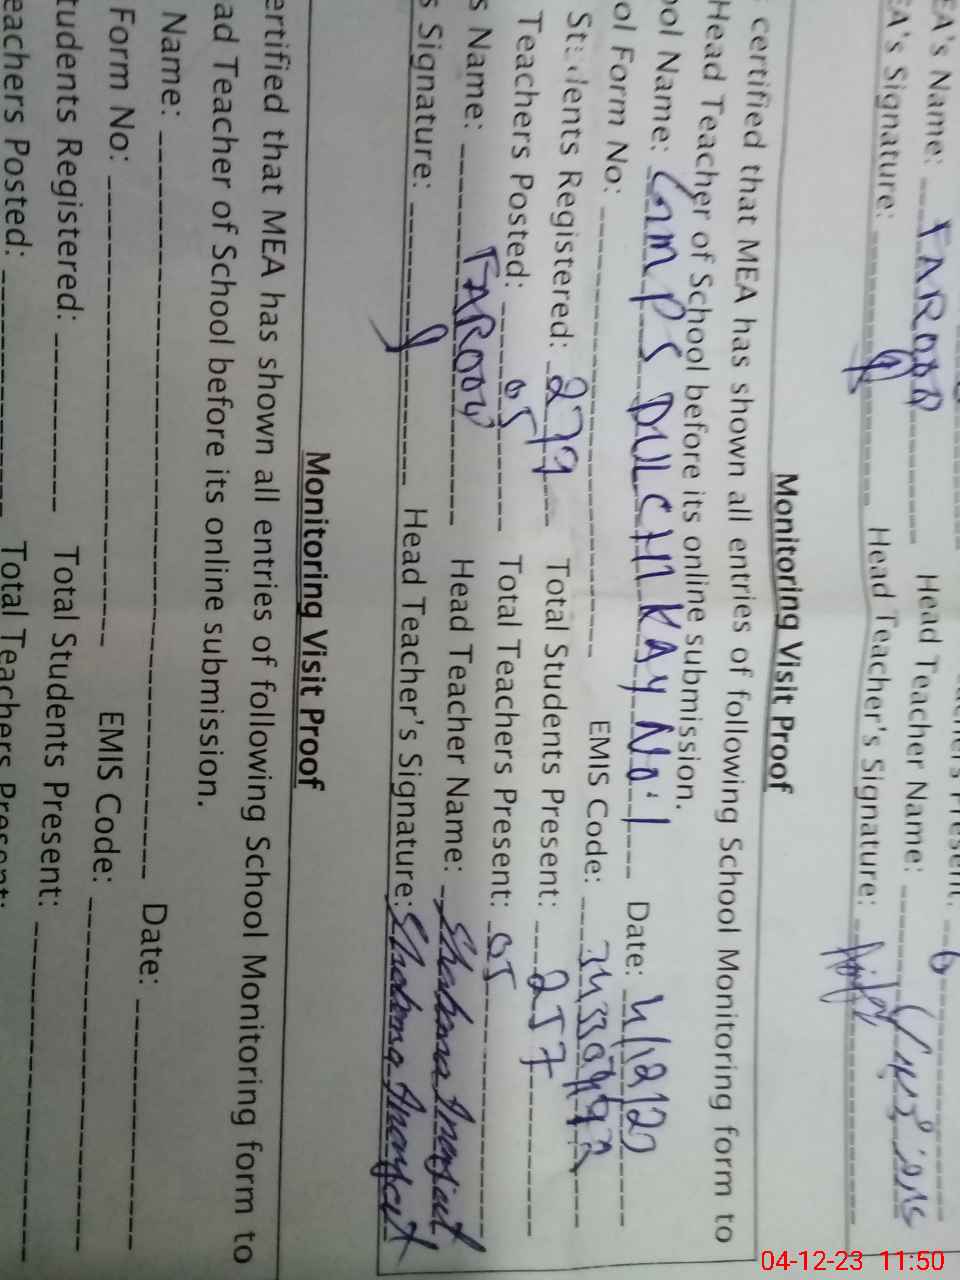 EA's Name: FAROOQ Head Teacher Name:
EA's Signature: Head Teacher's Signature:
Monitoring Visit Proof
certified that MEA has shown all entries of following School Monitoring form to
Head Teacher of School before its online submission.
ool Name: GMPS DULCHI KAY NO:1 Date: 4/12/23
ol Form No: EMIS Code:
Students Registered: 279 Total Students Present: 257
Teachers Posted: 05 Total Teachers Present: 05
s Name: FAROOQ Head Teacher Name: Shabana
s Signature: Head Teacher's Signature: Shabana
Monitoring Visit Proof
ertified that MEA has shown all entries of following School Monitoring form to
ad Teacher of School before its online submission.
Name: Date:
Form No: EMIS Code:
tudents Registered: Total Students Present:
eachers Posted: Total Teachers Present:
04-12-23 11:50